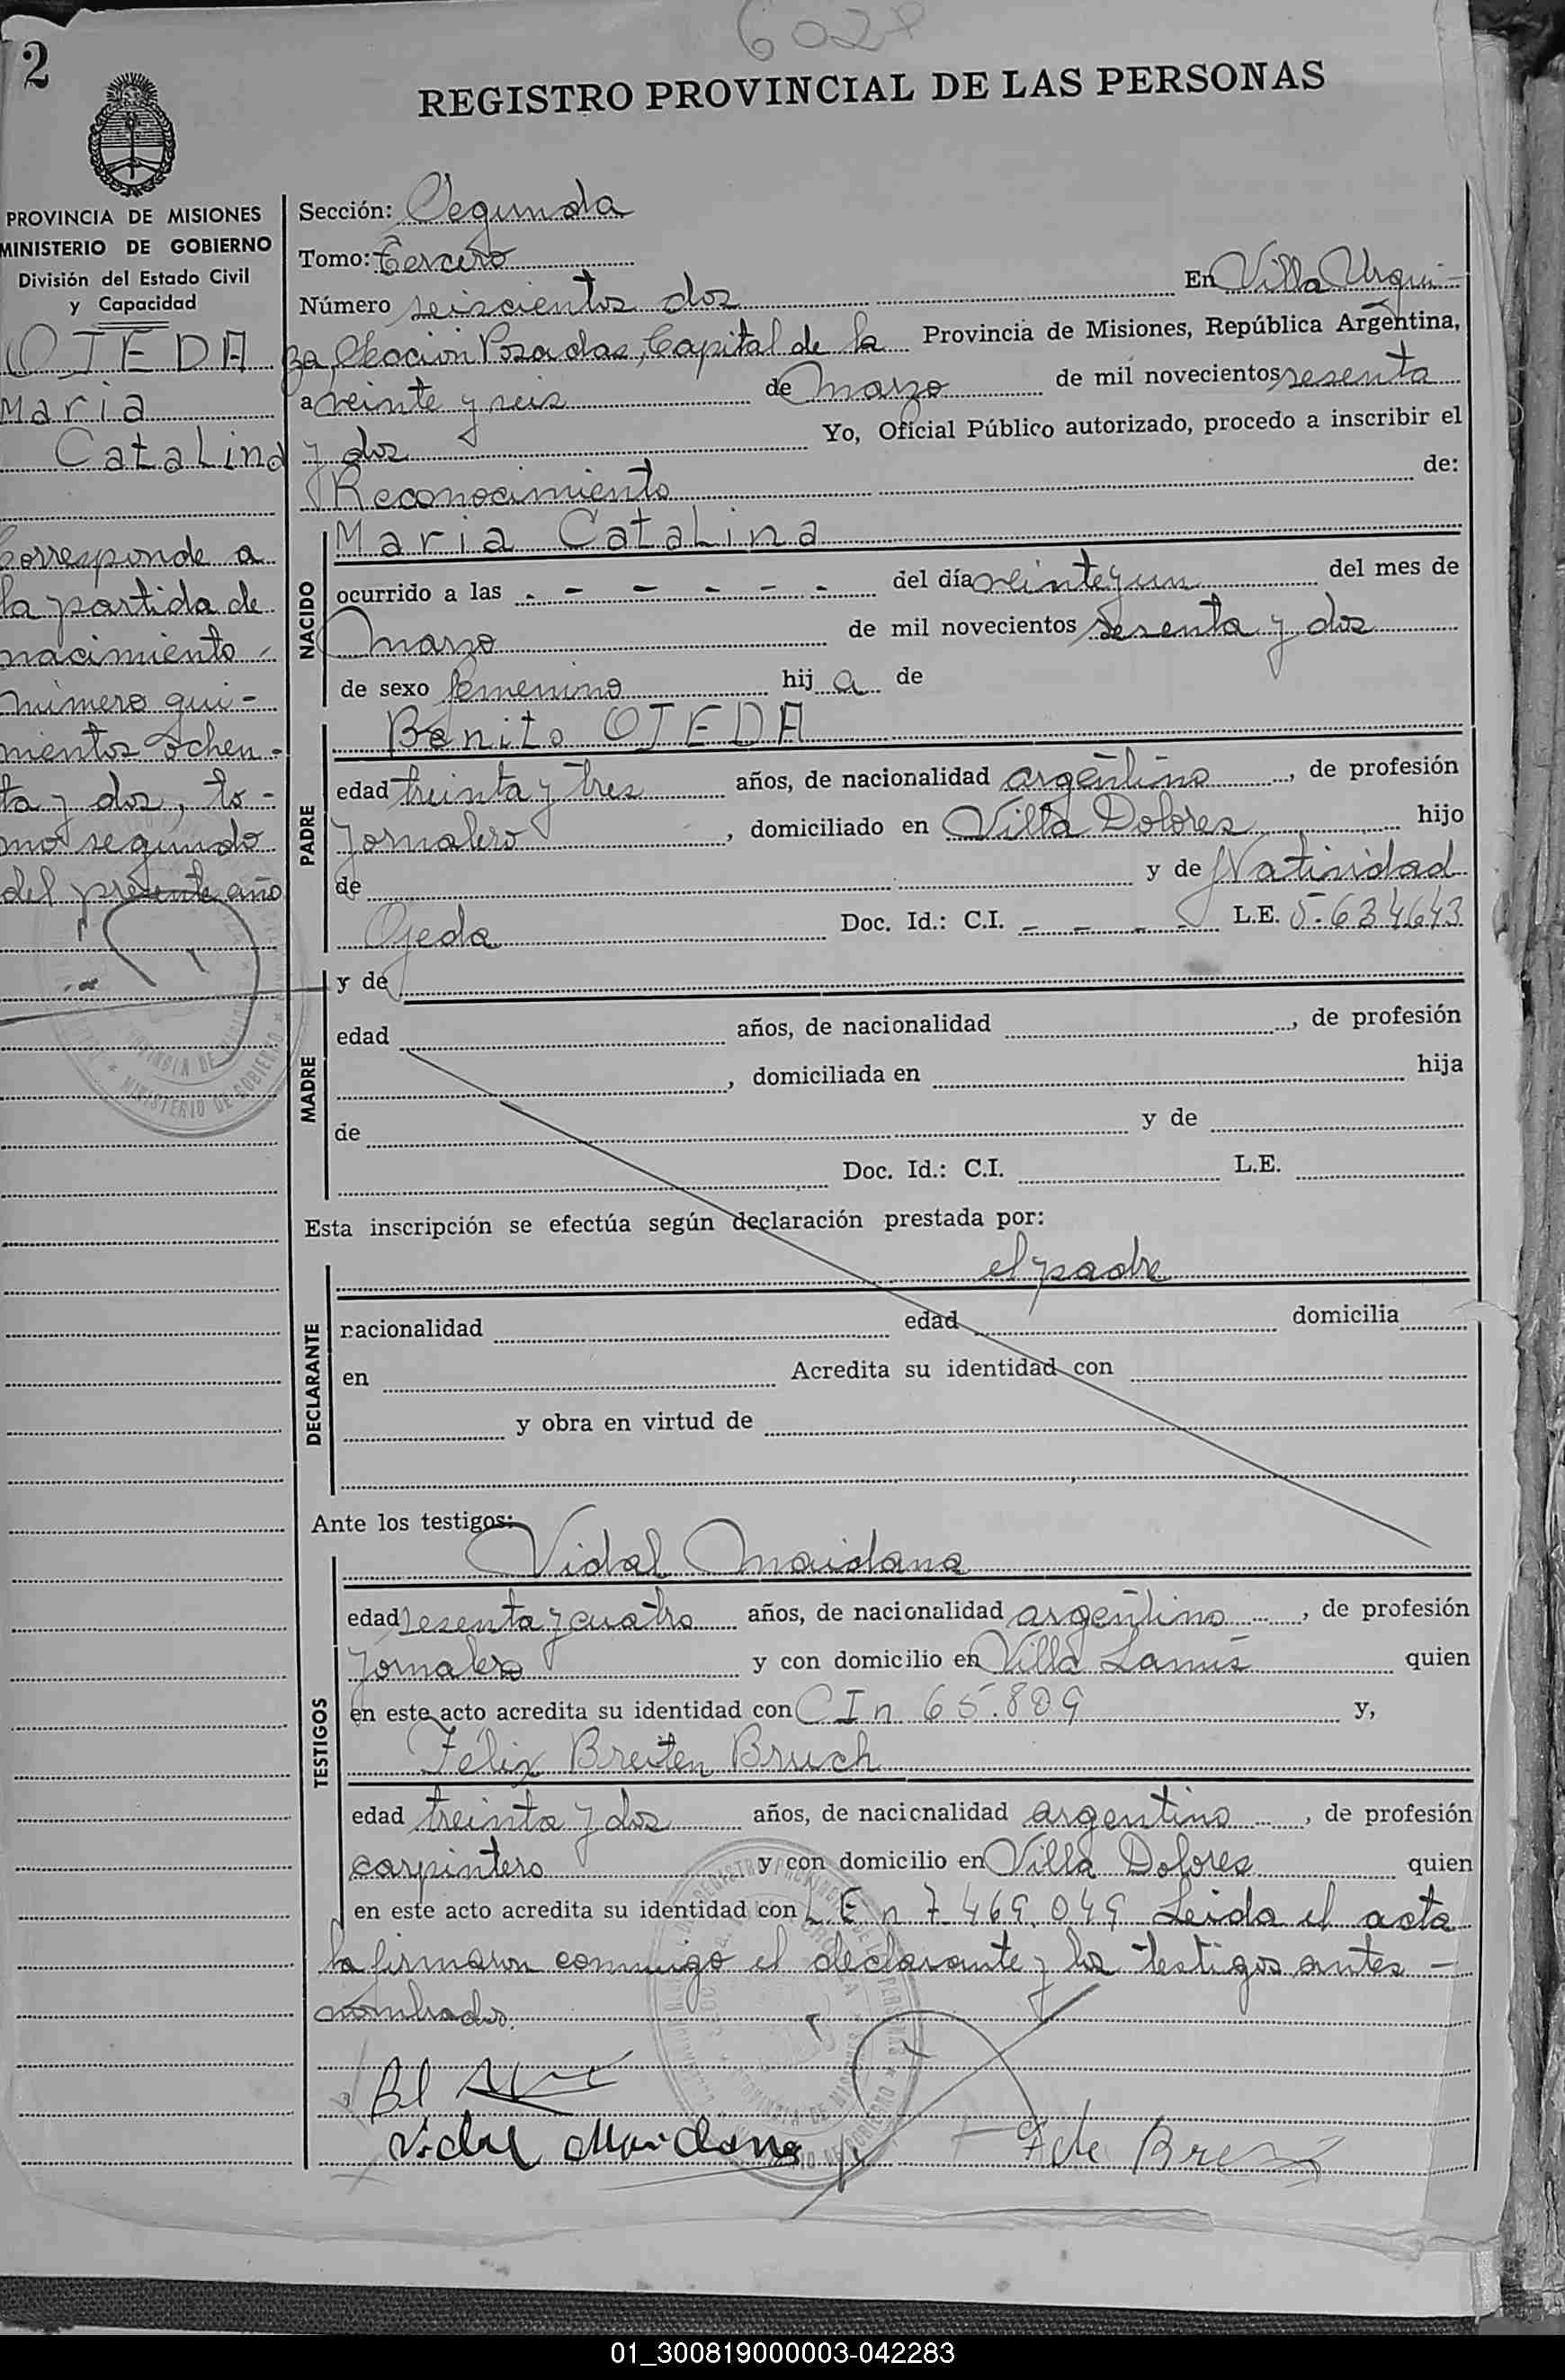 602
2
REGISTRO PROVINCIAL DE LAS PERSONAS
PROVINCIA DE MISIONES
MINISTERIO DE GOBIERNO
División del Estado Civil
y Capacidad
OJEDA
Maria
Catalina
Corresponde a
la partida de
nacimiento
número qui-
nientos ochen-
ta y dos, to-
mo segundo
del presente año
Sección: Segunda
Tomo: Tercero
Número seiscientos dos En Villa Urqui-
za Sección Posadas, Capital de la Provincia de Misiones, República Argentina,
a veinte y seis de marzo de mil novecientos sesenta
y dos Yo, Oficial Público autorizado, procedo a inscribir el
Reconocimiento de:
NACIDO
Maria Catalina
ocurrido a las - - - - - - del día veinte y un del mes de
marzo de mil novecientos sesenta y dos
de sexo femenino hij a de
PADRE
Benito OJEDA
edad treinta y tres años, de nacionalidad argentino, de profesión
Jornalero, domiciliado en Villa Dolores hijo
de y de Natividad
Ojeda Doc. Id.: C.I. - - - - L.E. 5.634643
MADRE
y de
edad años, de nacionalidad , de profesión
, domiciliada en hija
de y de
Doc. Id.: C.I. L.E.
Esta inscripción se efectúa según declaración prestada por:
DECLARANTE
el padre
nacionalidad edad domicilia
en Acredita su identidad con
y obra en virtud de
Ante los testigos:
TESTIGOS
Vidal Maidana
edad sesenta y cuatro años, de nacionalidad argentino, de profesión
Jornalero y con domicilio en Villa Lanus quien
en este acto acredita su identidad con CI n 65.809 y,
Félix Breiten Bruch
edad treinta y dos años, de nacionalidad argentino, de profesión
carpintero y con domicilio en Villa Dolores quien
en este acto acredita su identidad con LE n 7.469.049 Leida el acta
la firmaron conmigo el declarante y los testigos antes -
nombrados.
Vidal Maidana
01_300819000003-042283